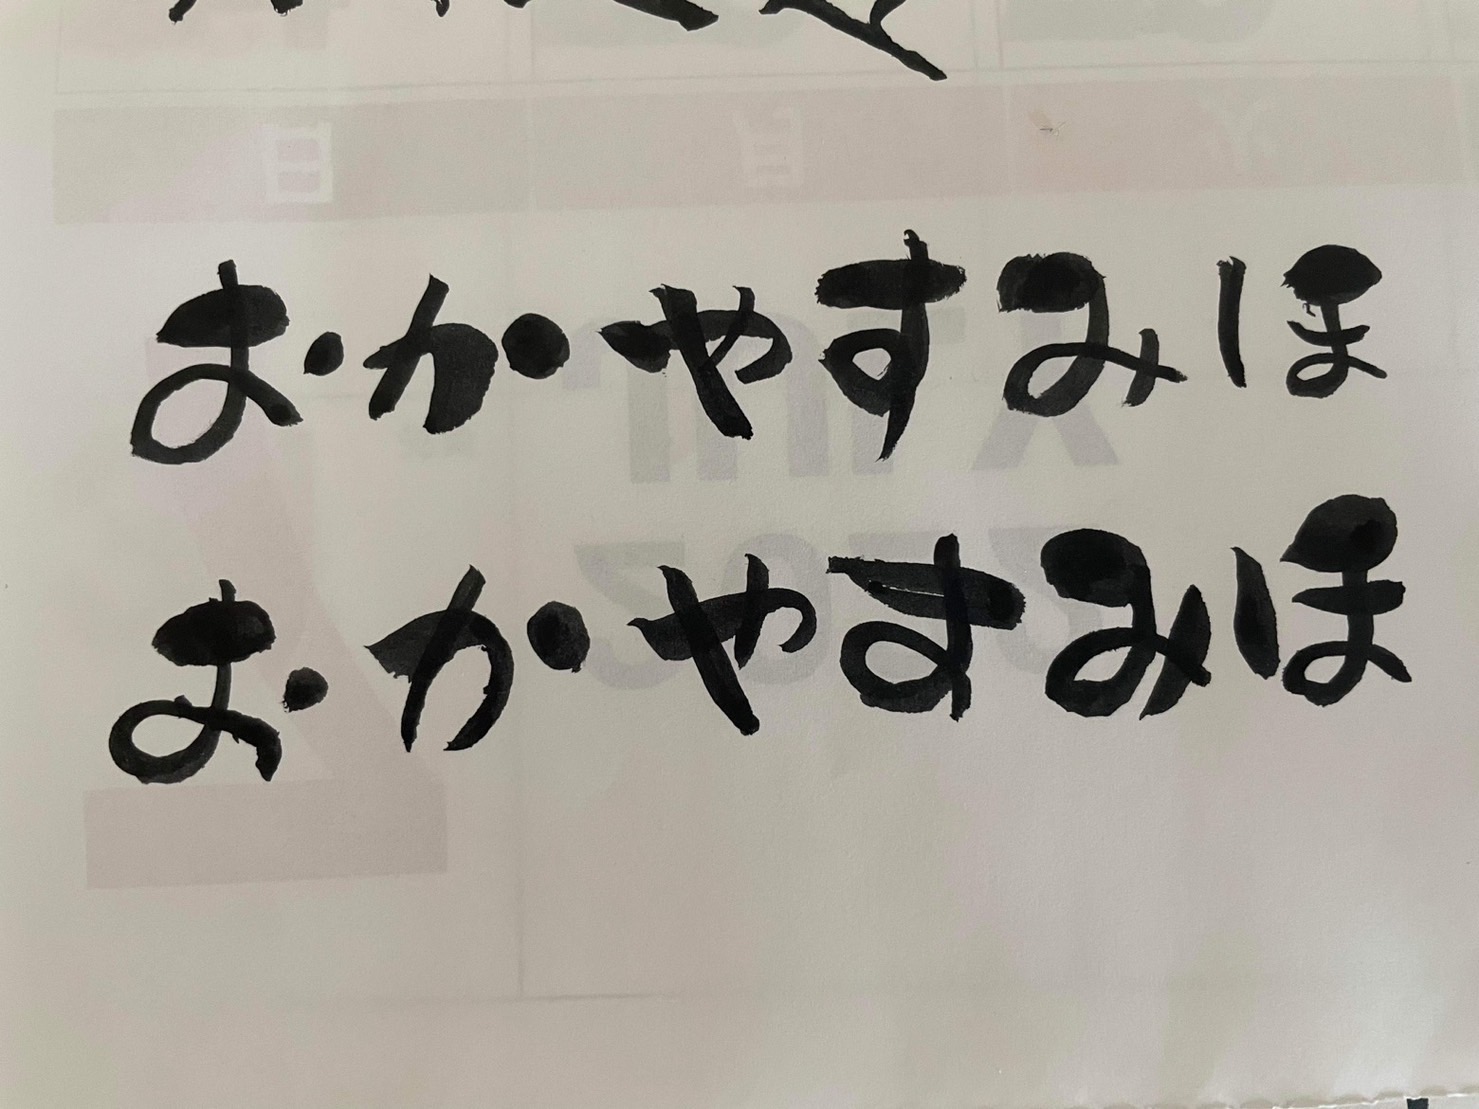 おかやすみほ
おかやすみほ